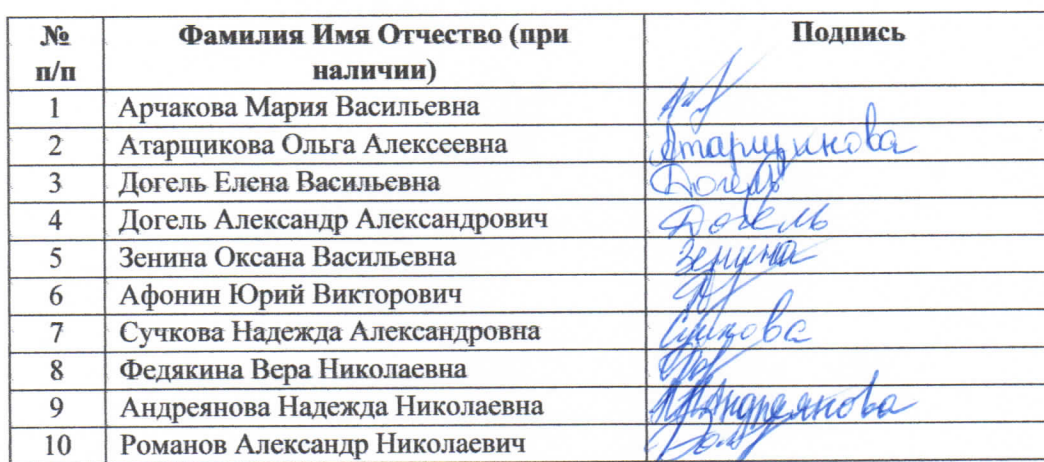 № Фамилия Имя Отчество (при Подпись
п/п наличии)
1 Арчакова Мария Васильевна
2 Атарщикова Ольга Алексеевна Атарщикова
3 Догель Елена Васильевна Догель
4 Догель Александр Александрович Догель
5 Зенина Оксана Васильевна Зенина
6 Афонин Юрий Викторович
7 Сучкова Надежда Александровна Сучкова
8 Федякина Вера Николаевна
9 Андреянова Надежда Николаевна Андреянова
10 Романов Александр Николаевич